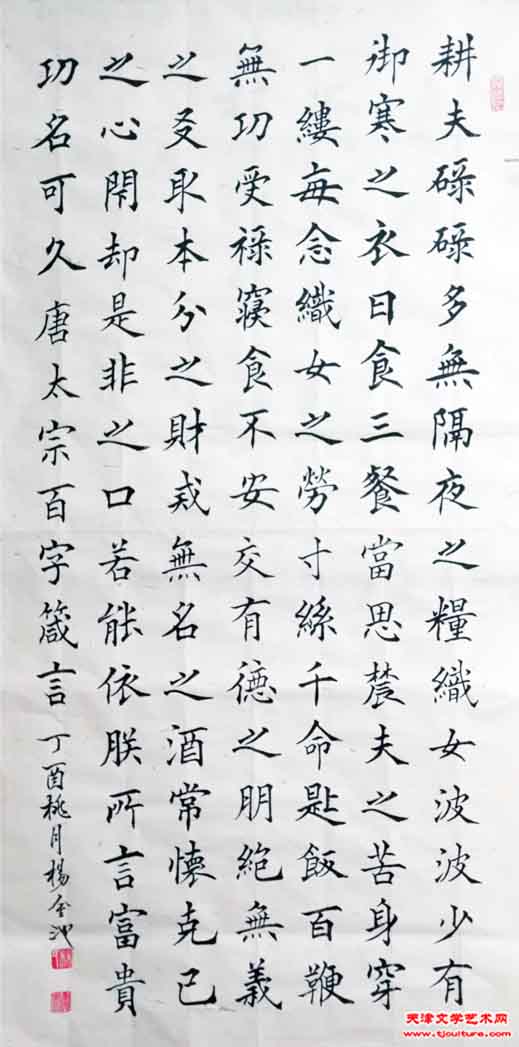 耕夫碌碌多無隔夜之糧織女波波少有
御寒之衣日食三餐當思農夫之苦身穿
一縷每念織女之勞寸絲千命匙飯百鞭
無功受祿寢食不安交有德之朋絕無義
之友取本分之財戒無名之酒常懷克己
之心閉却是非之口若能依朕所言富貴
功名可久唐太宗百字箴言 丁酉桃月楊金池
天津文学艺术网
www.tjculture.com